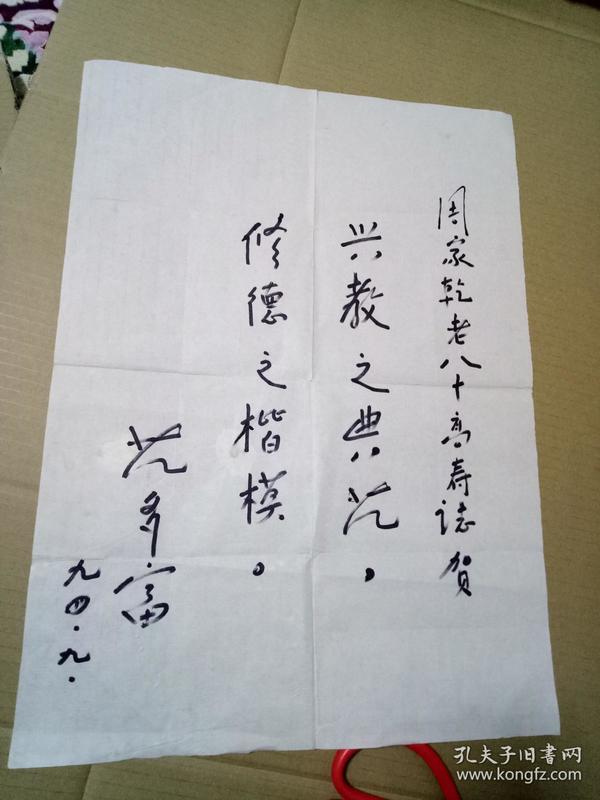 周家乾老八十高寿誌贺
兴教之典范，
修德之楷模。
范多富
九四.九.
孔夫子旧书网
www.kongfz.com